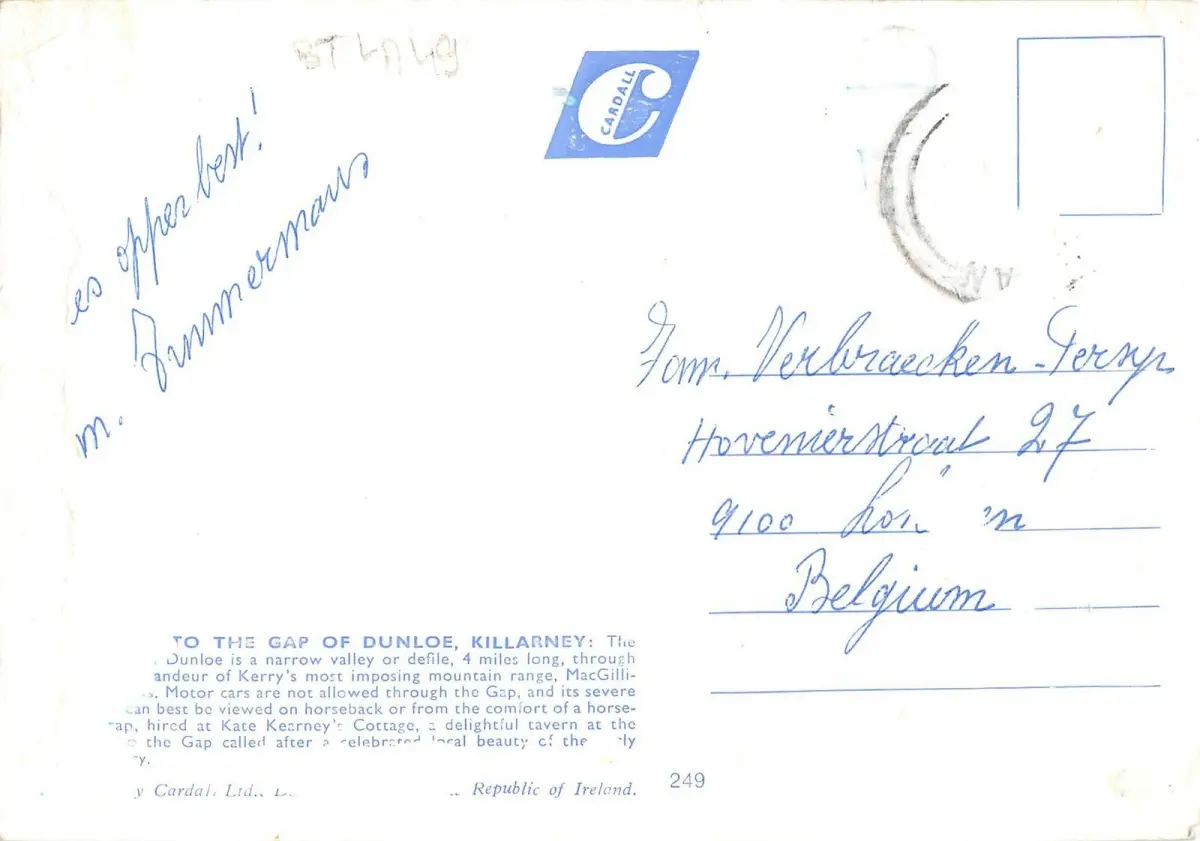 CARDALL
es opperbest!
m. Zimmermans
AN
Fam. Verbraecken-Persyn
Hovenierstraat 27
9100
Belgium
TO THE GAP OF DUNLOE, KILLARNEY: The
Dunloe is a narrow valley or defile, 4 miles long, through
andeur of Kerry's most imposing mountain range, MacGilli-
s. Motor cars are not allowed through the Gap, and its severe
can best be viewed on horseback or from the comfort of a horse-
ap, hired at Kate Kearney's Cottage, a delightful tavern at the
the Gap called after a celebrated local beauty of the ly
y.
y Cardall Ltd., Republic of Ireland.
249